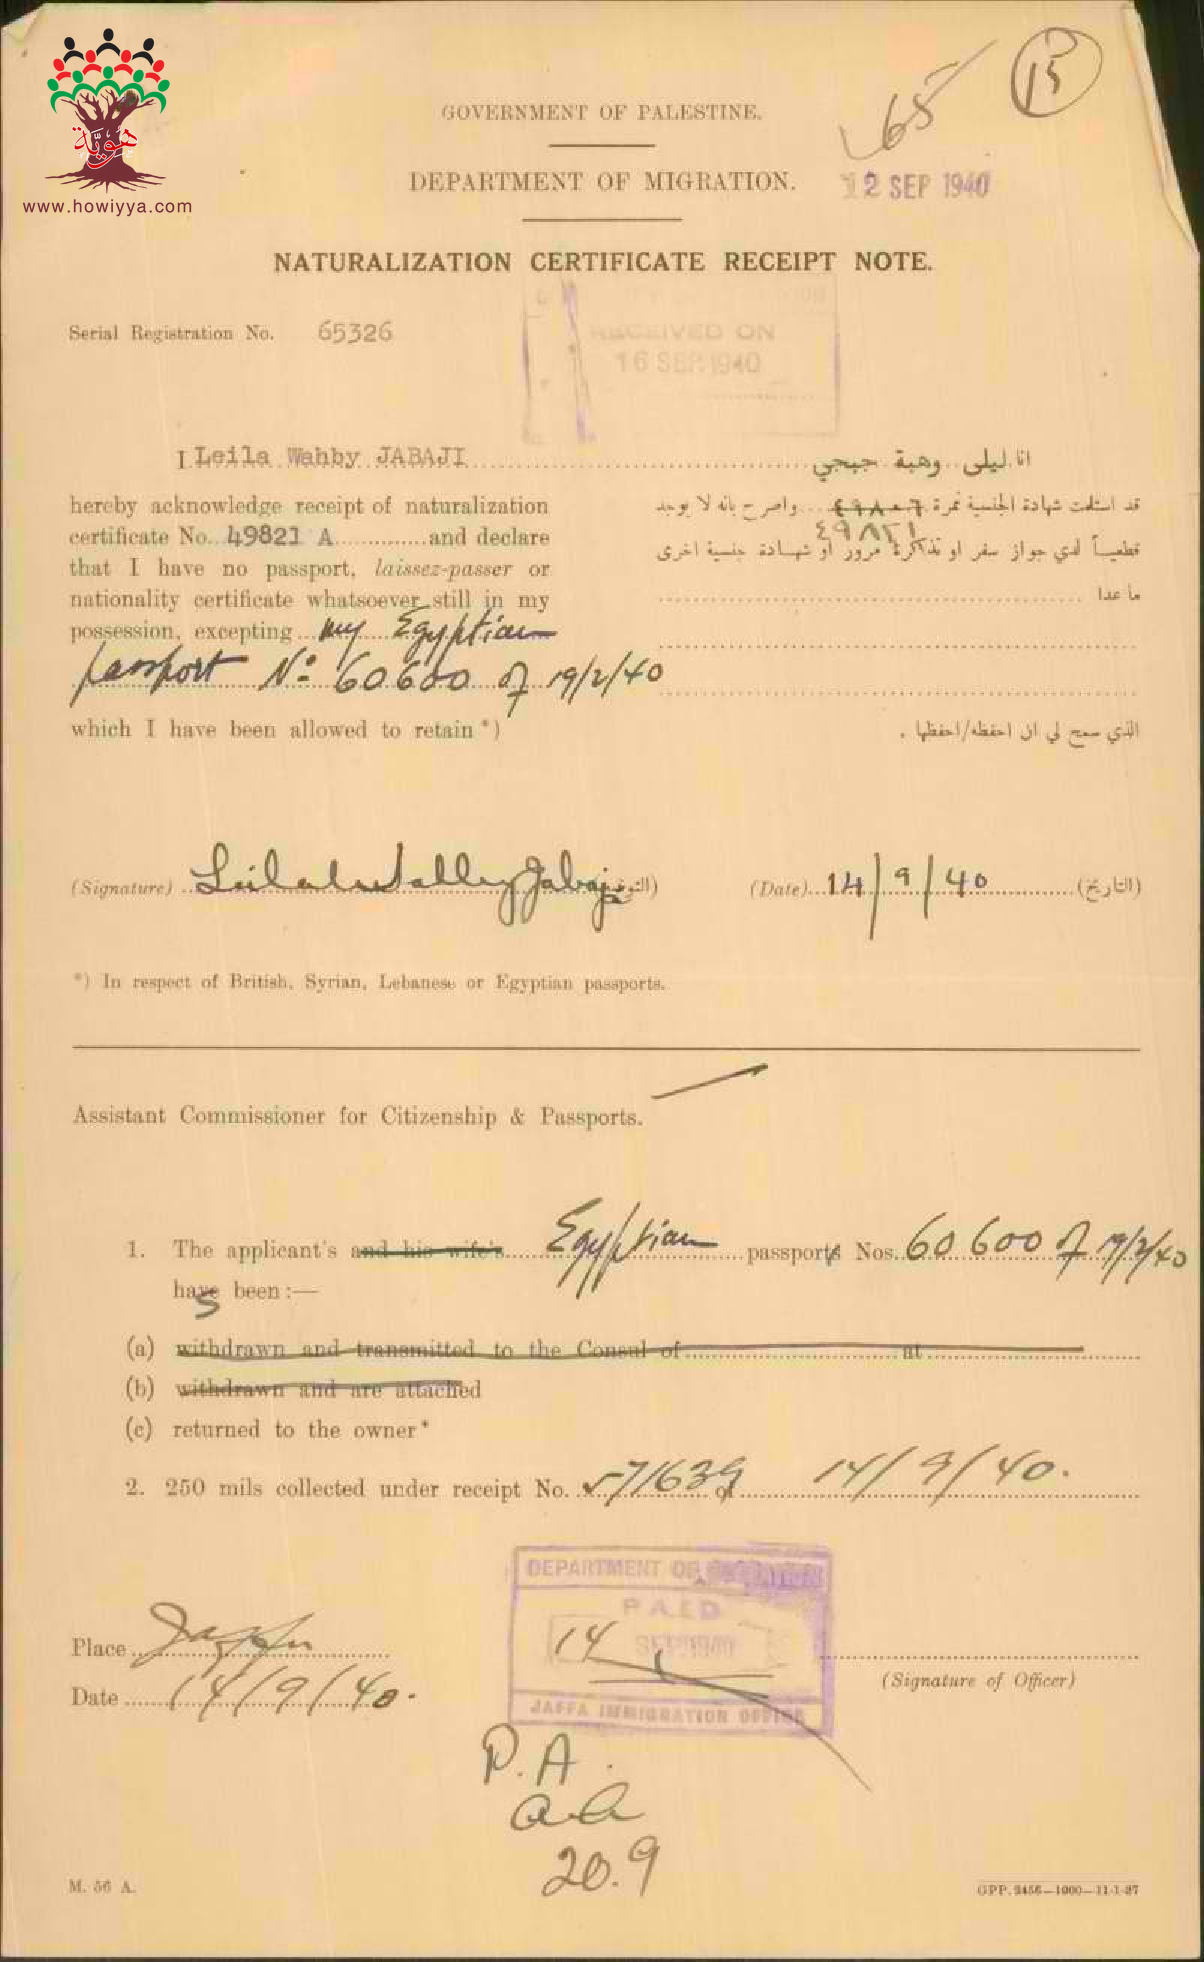 هوية
www.howiyya.com
15
65
GOVERNMENT OF PALESTINE.
DEPARTMENT OF MIGRATION.
12 SEP 1940
NATURALIZATION CERTIFICATE RECEIPT NOTE.
Serial Registration No. 65326
RECEIVED ON
16 SEP. 1940
I Leila Wahby JABAJI
انا ليلى وهبة جبجي
hereby acknowledge receipt of naturalization
certificate No. 49821 A and declare
that I have no passport, laissez-passer or
nationality certificate whatsoever still in my
possession, excepting my Egyptian
passport No: 60600 of 19/2/40
which I have been allowed to retain *)
قد استلمت شهادة الجنسية نمرة ٤٩٨٠٦ واصرح بانه لا يوجد
٤٩٨٢١
قطعياً لدي جواز سفر او تذكرة مرور او شهادة جنسية اخرى
ما عدا
الذي سمح لي ان احفظه/احفظها .
(Signature) Leila Wahby Jabaji (التوقيع)
(Date) 14/9/40 (التاريخ)
*) In respect of British, Syrian, Lebanese or Egyptian passports.
Assistant Commissioner for Citizenship & Passports.
1. The applicant's and his wife's Egyptian passports Nos. 60600 of 19/2/40
have been :—
s
(a) withdrawn and transmitted to the Consul of at
(b) withdrawn and are attached
(c) returned to the owner*
2. 250 mils collected under receipt No. 571639 of 14/9/40.
DEPARTMENT OF
PAID
14 SEP. 1940
JAFFA IMMIGRATION OFFICE
Place Jaffa
Date 14/9/40.
(Signature of Officer)
P.A.
20.9
M. 56 A.
GPP. 9456—1000—11-1-37